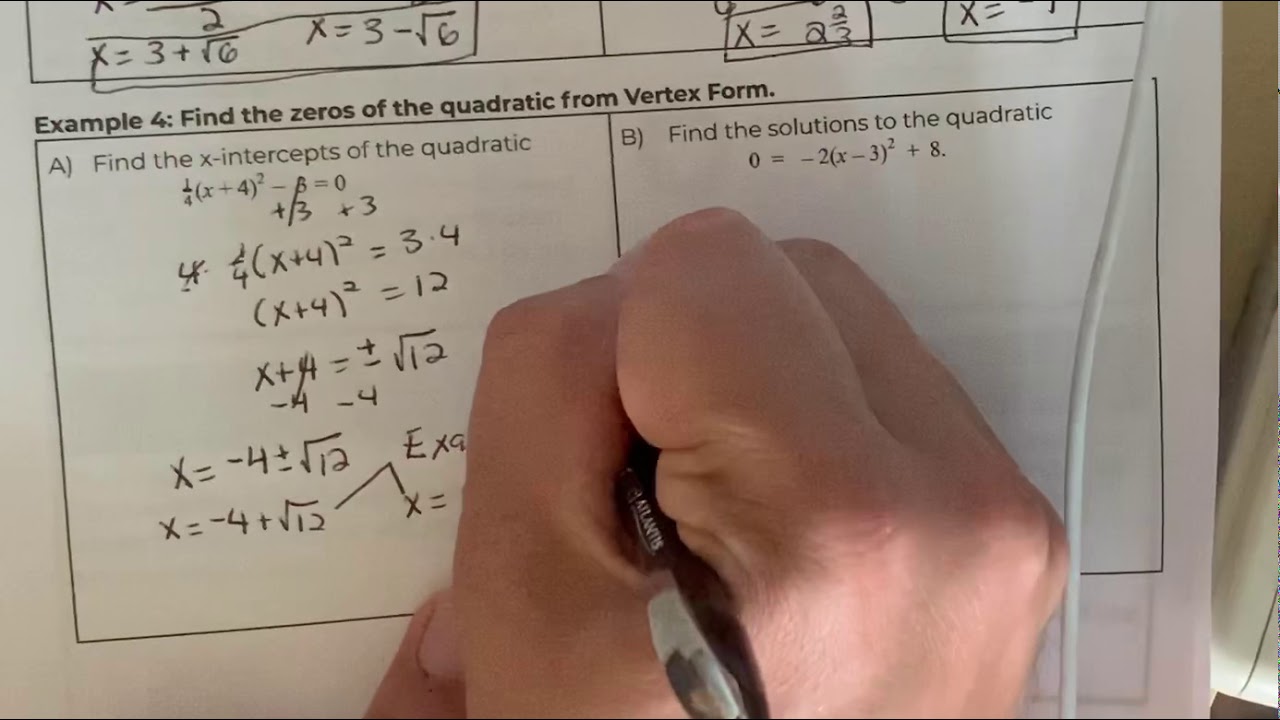 2
x = 3 + √6 x = 3 - √6
x = 2 2/3
x = -1
Example 4: Find the zeros of the quadratic from Vertex Form.
A) Find the x-intercepts of the quadratic
1/4(x + 4)² - 3 = 0
+3 +3
4· 1/4(x+4)² = 3·4
(x+4)² = 12
x+4 = ±√12
-4 -4
x = -4 ± √12 Exa
x = -4 + √12 x =
B) Find the solutions to the quadratic
0 = -2(x - 3)² + 8.
ATLANTIS